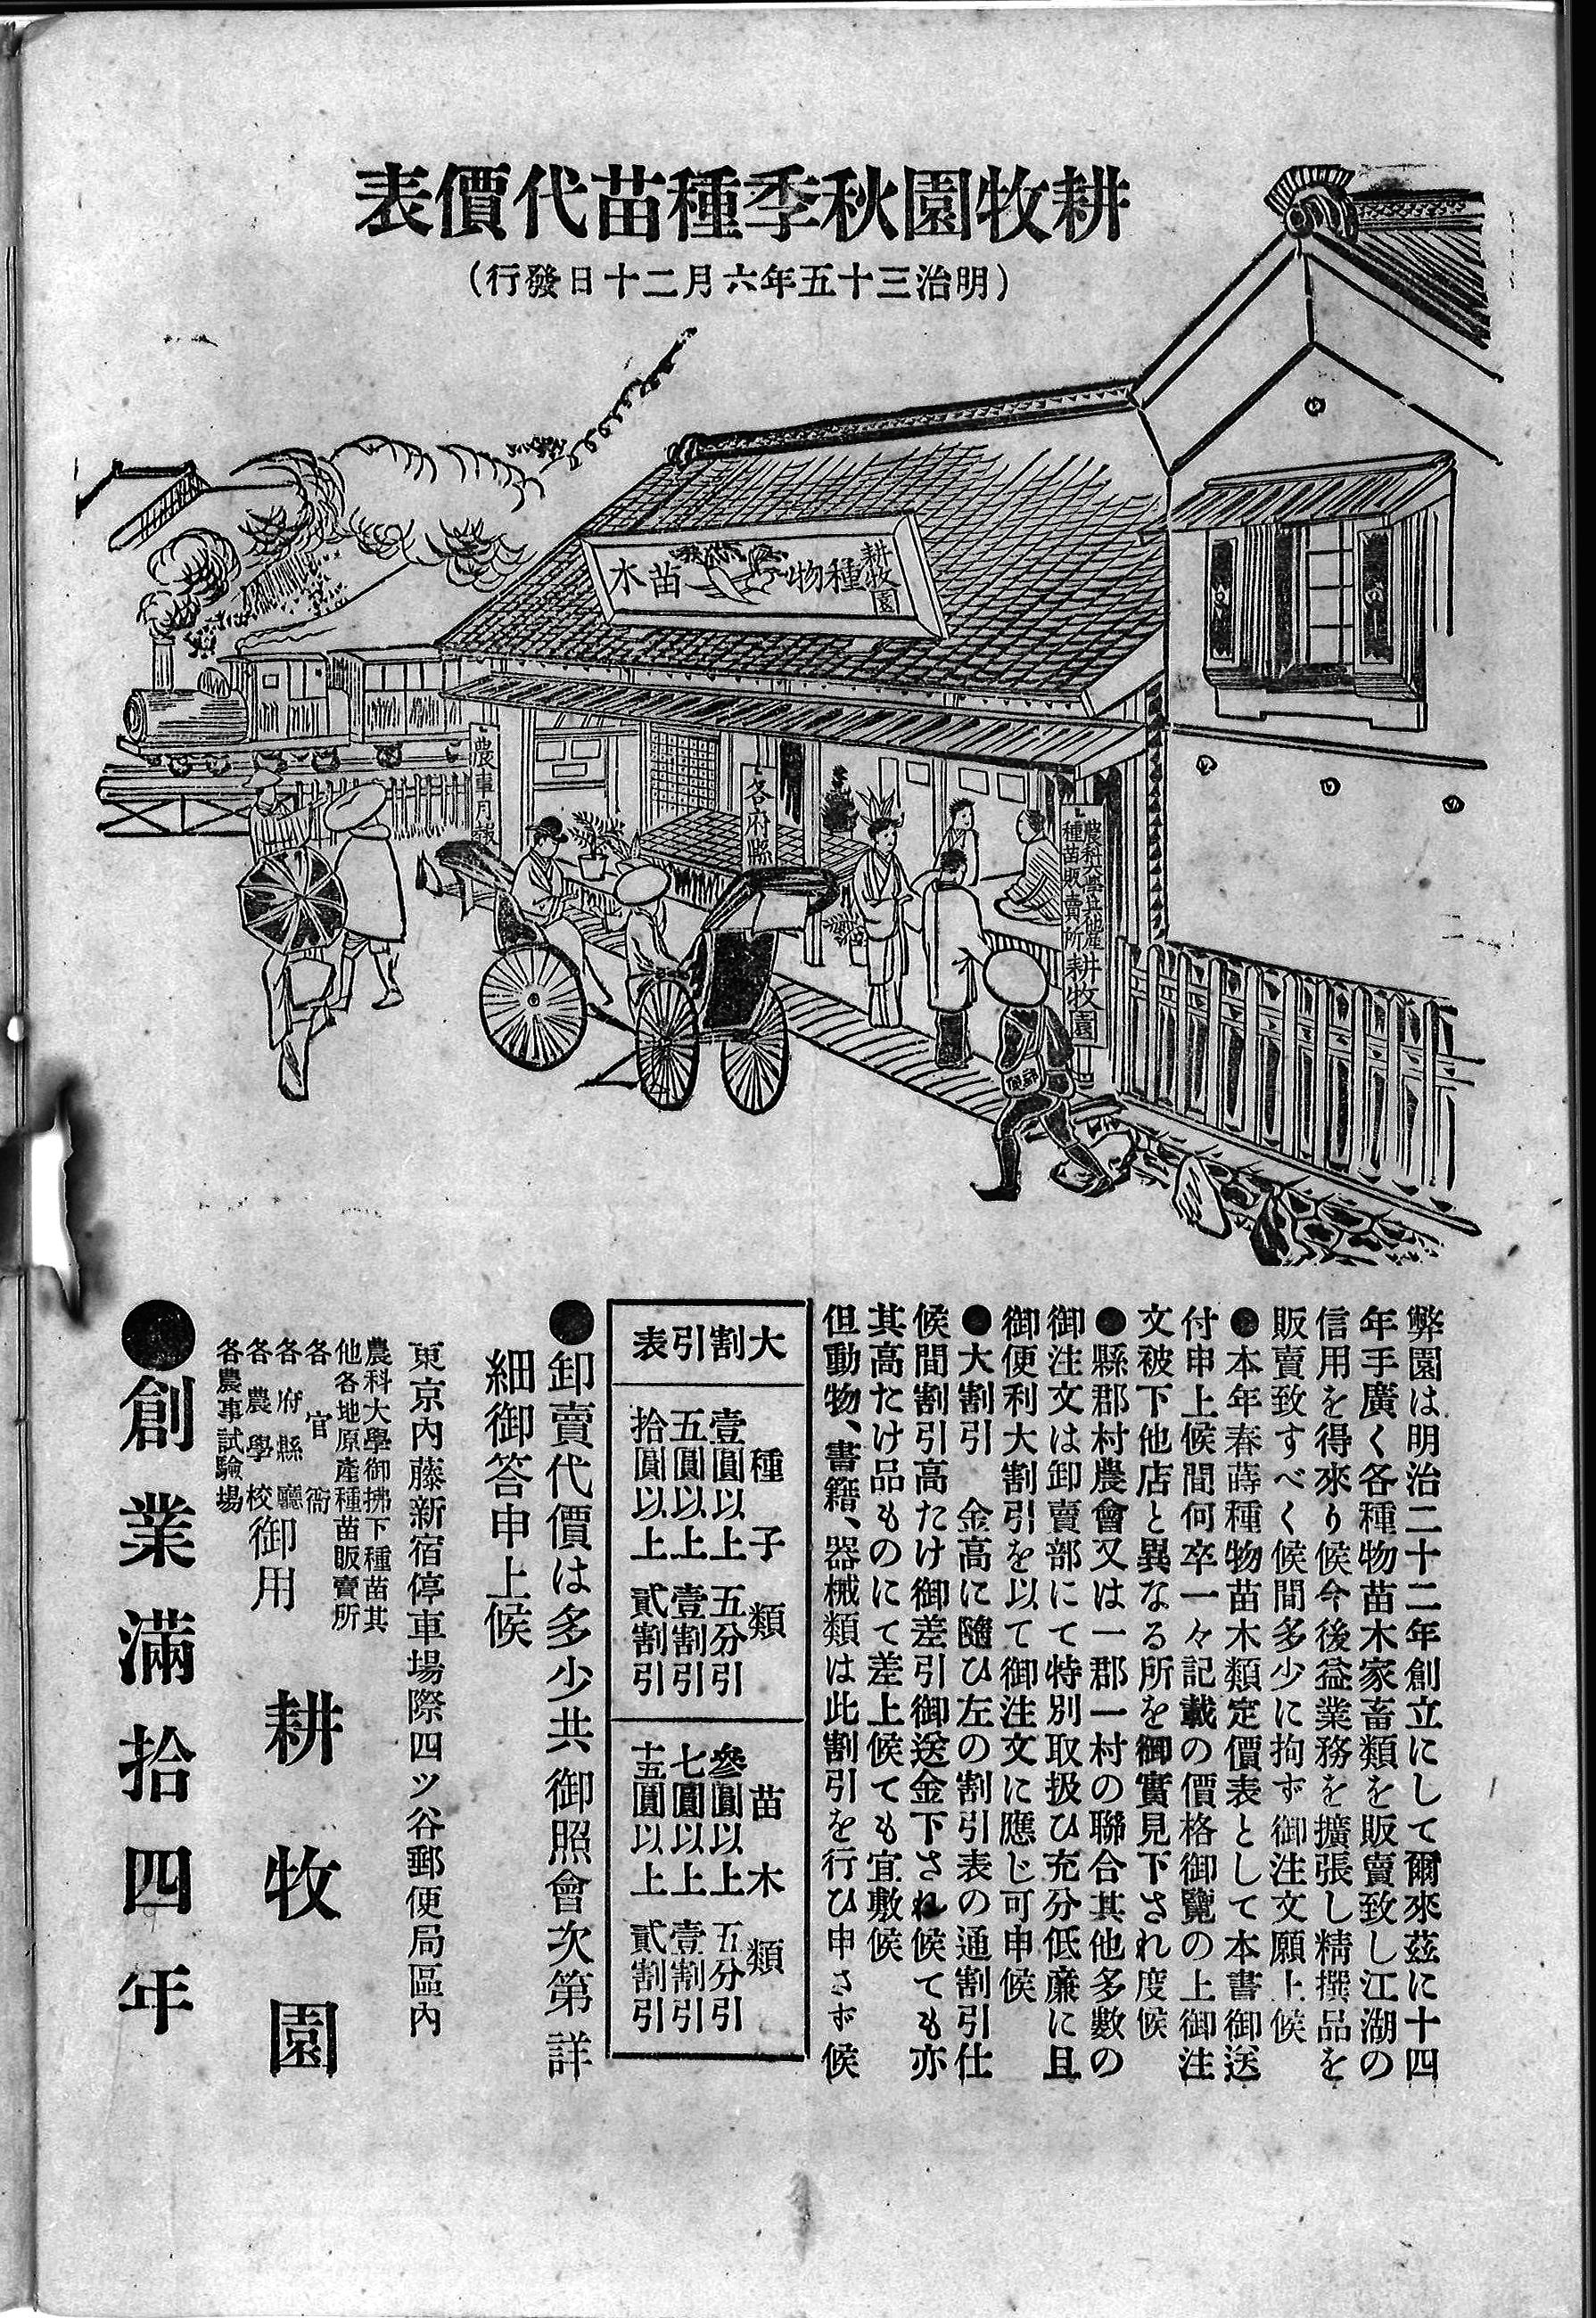 耕牧園秋季種苗代價表
(明治三十五年六月二十日發行)
耕牧園
種物
苗木
農事月報
各府縣
農科大學其他產
種苗販賣所
耕牧園
弊園は明治二十二年創立にして爾來茲に十四
年手廣く各種物苗木家畜類を販賣致し江湖の
信用を得來り候今後益業務を擴張し精撰品を
販賣致すべく候間多少に拘ず御注文願上候
●本年春蒔種物苗木類定價表として本書御送
付申上候間何卒一々記載の價格御覽の上御注
文被下他店と異なる所を御實見下され度候
●縣郡村農會又は一郡一村の聯合其他多數の
御注文は卸賣部にて特別取扱ひ充分低廉に且
御便利大割引を以て御注文に應じ可申候
●大割引 金高に隨ひ左の割引表の通割引仕
候間割引高たけ御差引御送金下され候ても亦
其高たけ品ものにて差上候ても宜敷候
但動物、書籍、器械類は此割引を行ひ申さず候
大割引表
種子類
壹圓以上 五分引
五圓以上 壹割引
拾圓以上 貳割引
苗木類
參圓以上 五分引
七圓以上 壹割引
十五圓以上 貳割引
●卸賣代價は多少共御照會次第詳
細御答申上候
東京內藤新宿停車場際四ツ谷郵便局區內
農科大學御拂下種苗其
他各地原產種苗販賣所
各官衙
各府縣廳
各農學校
各農事試驗場
御用
耕牧園
●創業滿拾四年